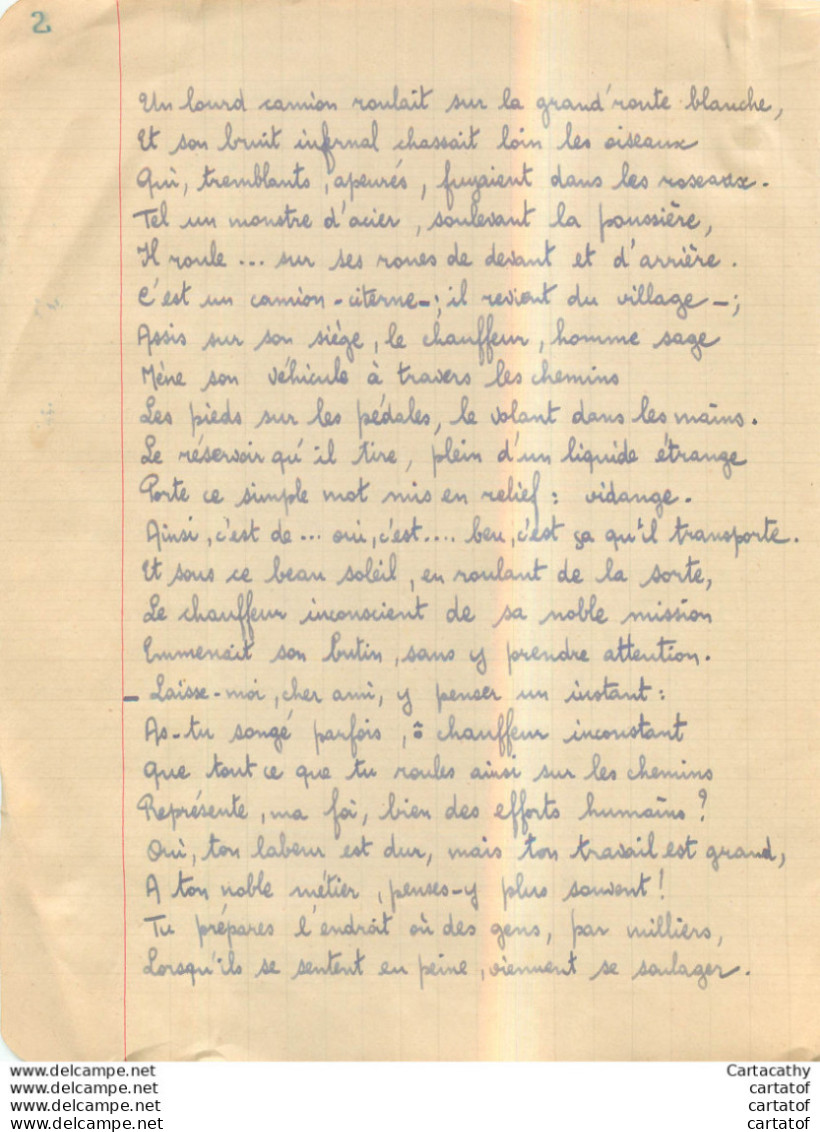 2
Un lourd camion roulait sur la grand'route blanche,
Et son bruit infernal chassait loin les oiseaux
Qui, tremblants, apeurés, fuyaient dans les roseaux.
Tel un monstre d'acier, soulevant la poussière,
Il roule ... sur ses roues de devant et d'arrière.
C'est un camion-citerne-; il revient du village-;
Assis sur son siège, le chauffeur, homme sage
Mène son véhicule à travers les chemins
Les pieds sur les pédales, le volant dans les mains.
Le réservoir qu'il tire, plein d'un liquide étrange
Porte ce simple mot mis en relief : vidange.
Ainsi, c'est de ... oui, c'est.... beu, c'est ça qu'il transporte.
Et sous ce beau soleil, en roulant de la sorte,
Le chauffeur inconscient de sa noble mission
Emmenait son butin, sans y prendre attention.
- Laisse-moi, cher ami, y penser un instant :
As-tu songé parfois, ô chauffeur inconstant
Que tout ce que tu roules ainsi sur les chemins
Représente, ma foi, bien des efforts humains ?
Oui, ton labeur est dur, mais ton travail est grand,
A ton noble métier, penses-y plus souvent !
Tu prépares l'endroit où des gens, par milliers,
Lorsqu'ils se sentent en peine, viennent se soulager.
www.delcampe.net Cartacathy
www.delcampe.net cartatof
www.delcampe.net cartatof
www.delcampe.net cartatof